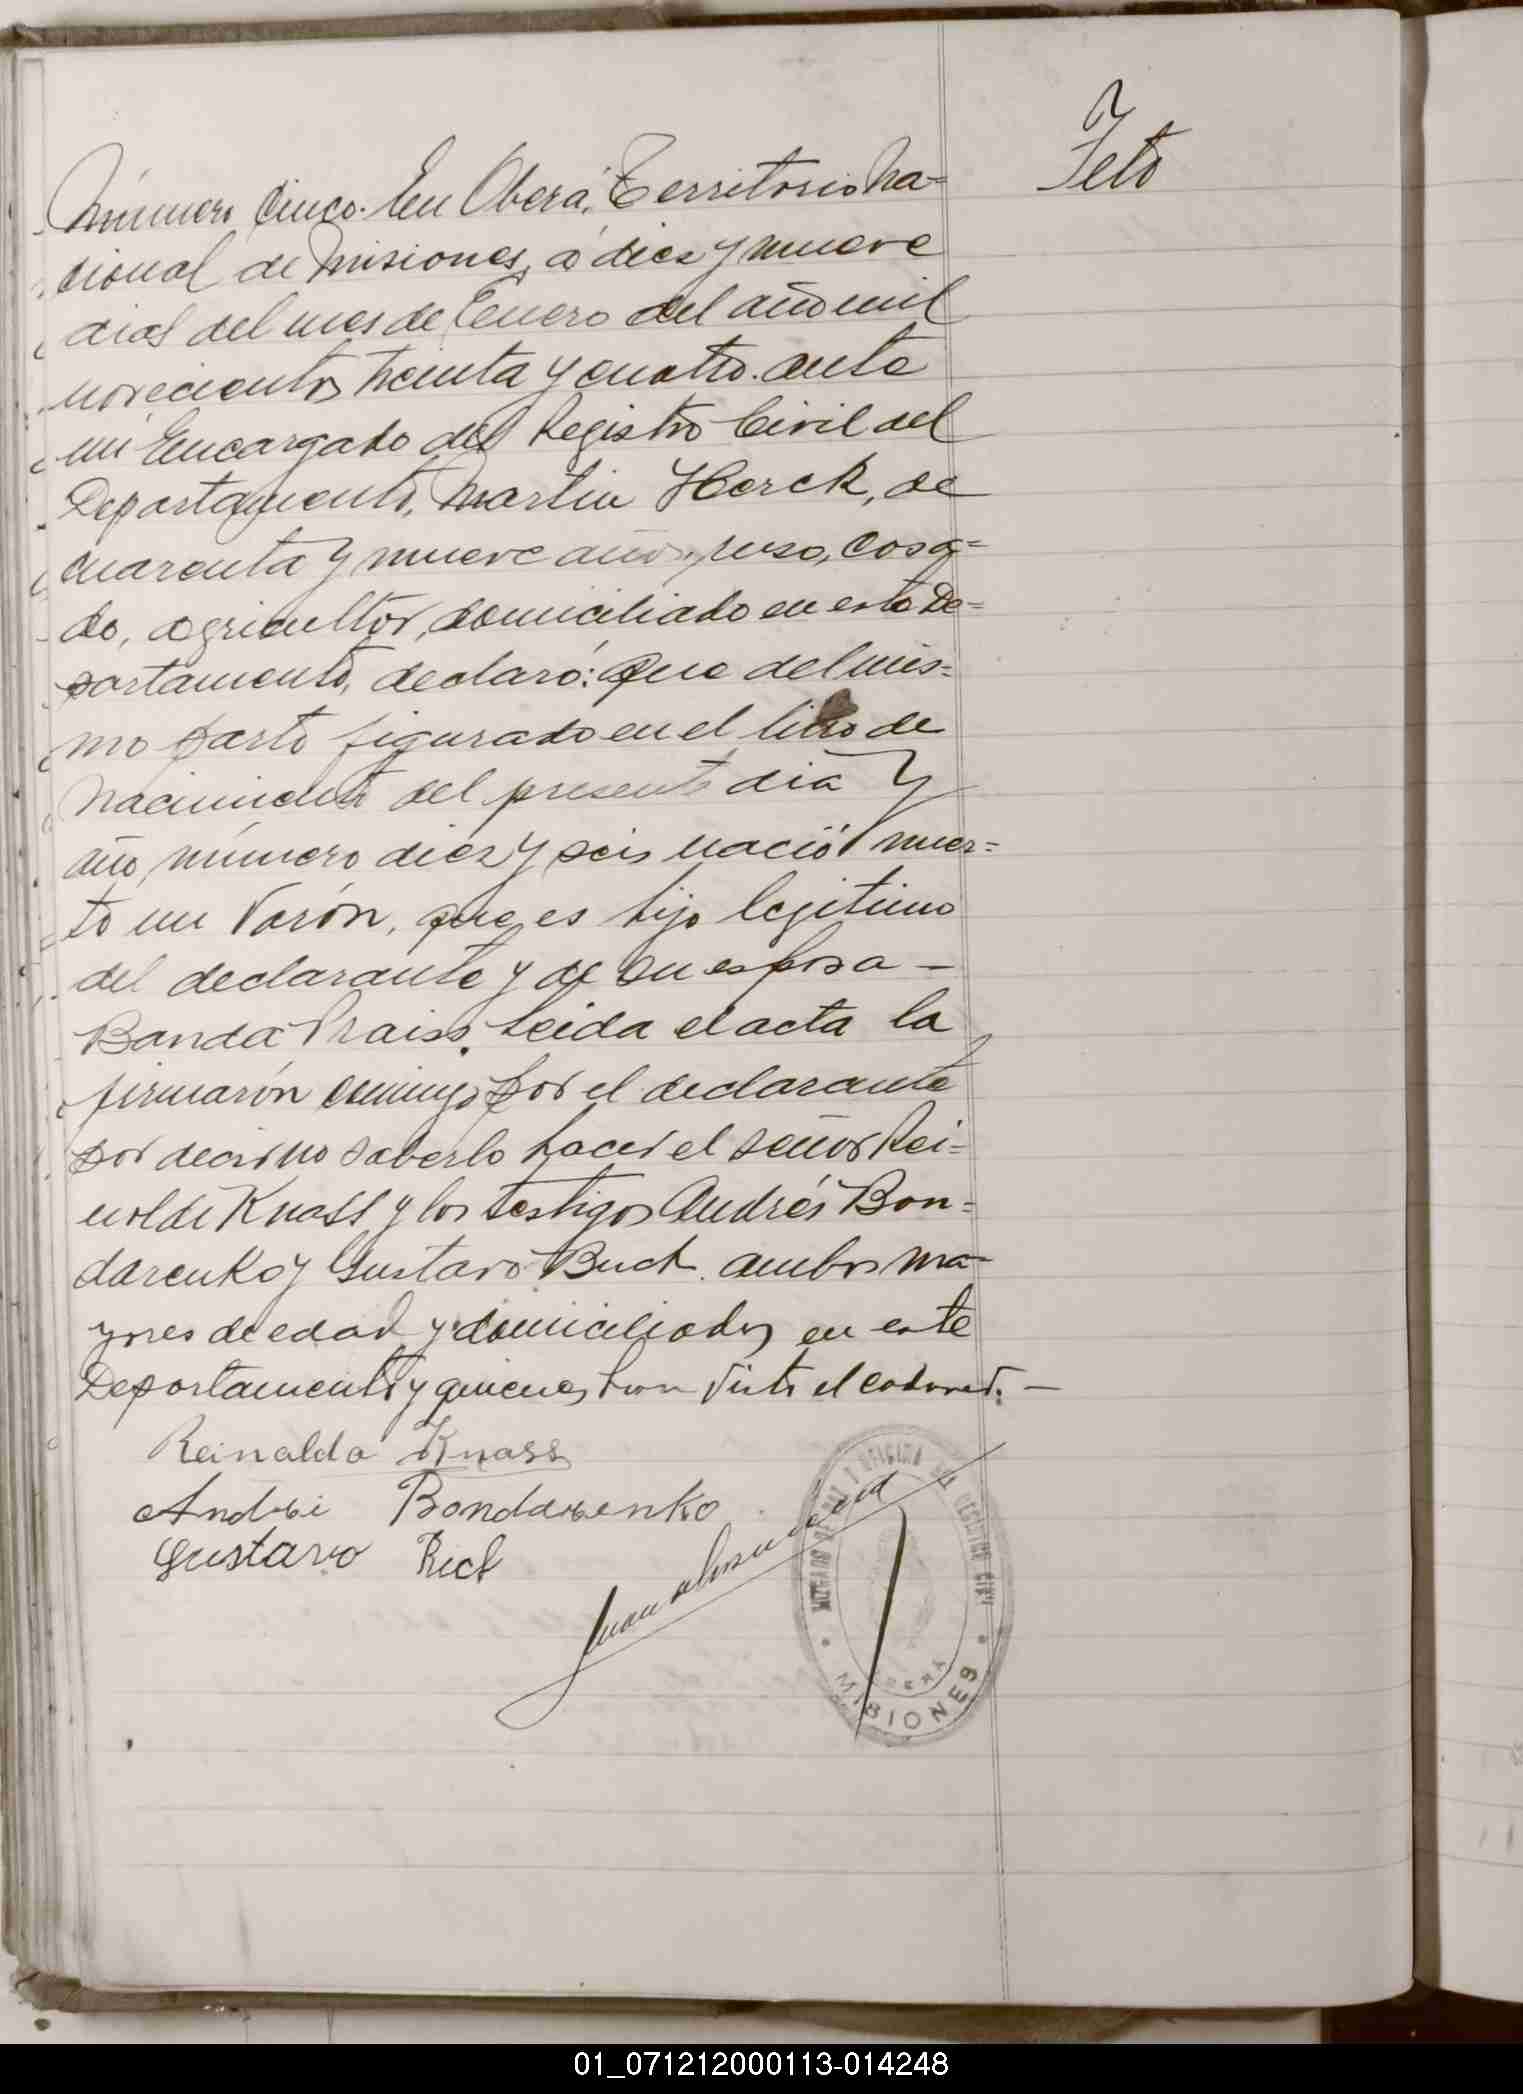 Feto
Número Cinco. En Oberá, Territorio Na=
cional de Misiones, á diez y nueve
dias del mes de Enero del año mil
novecientos treinta y cuatro. ante
mi Encargado del Registro Civil del
Departamento, Martin Herck, de
cuarenta y nueve años, ruso, casa=
do, agricultor, domiciliado en este De=
partamento, declaró: Que del mis=
mo parto figurado en el libro de
nacimiento del presente dia y
año, número diez y seis nació muer=
to un Varón, que es hijo legitimo
del declarante y de su esposa —
Banda Praiss. Leida el acta la
firmarón conmigo por el declarante
por decir no saberlo hacer el señor Rei=
noldi Knass y los testigos Andrés Bon=
darenko y Gustavo Buch. ambos ma=
yores de edad y domiciliados en este
Departamento y quienes han visto el cadaver. —
Reinaldo Knass
Andri Bondarenko
Gustavo
Juan
OFICINA DEL REGISTRO CIVIL
OBERÁ
MISIONES
01_071212000113-014248